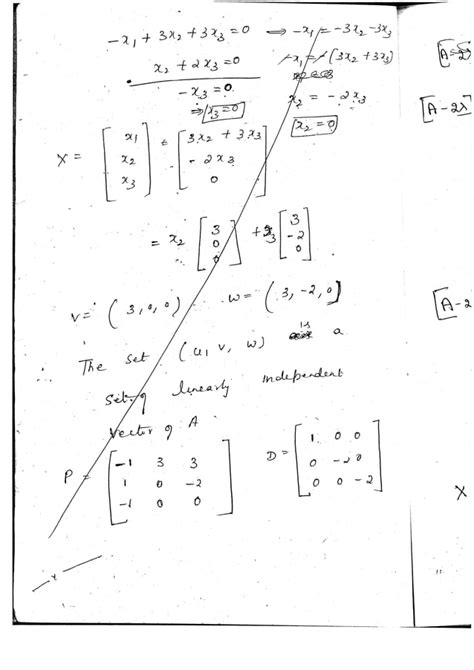 -x1 + 3x2 + 3x3 = 0 ⇒ -x1 = -3x2 - 3x3
x2 + 2x3 = 0 -x1 = -(3x2 + 3x3)
-x3 = 0. x2 = -2x3
⇒ x3 = 0 x2 = 0
X = [x1 x2 x3] = [3x2 + 3x3 -2x3 0]
= x2 [3 0 0] + x3 [3 -2 0]
v = (3, 0, 0) w = (3, -2, 0)
The set (u, v, w) is a
set of linearly independent
vector of A
P = [-1 3 3 1 0 -2 -1 0 0] D = [1 0 0 0 -2 0 0 0 -2]
[A-2λ]
[A-2
X